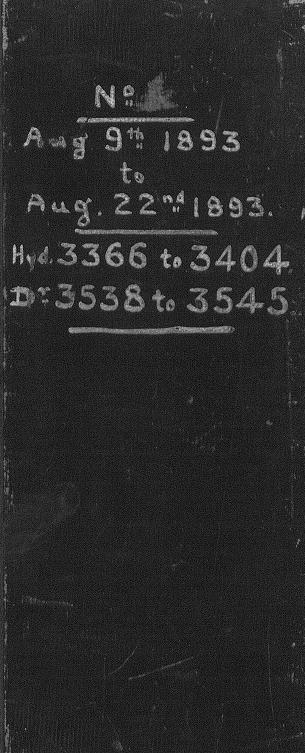 Nº
Aug 9th 1893
to
Aug. 22nd 1893.
Hyd. 3366 to 3404
Dr 3538 to 3545